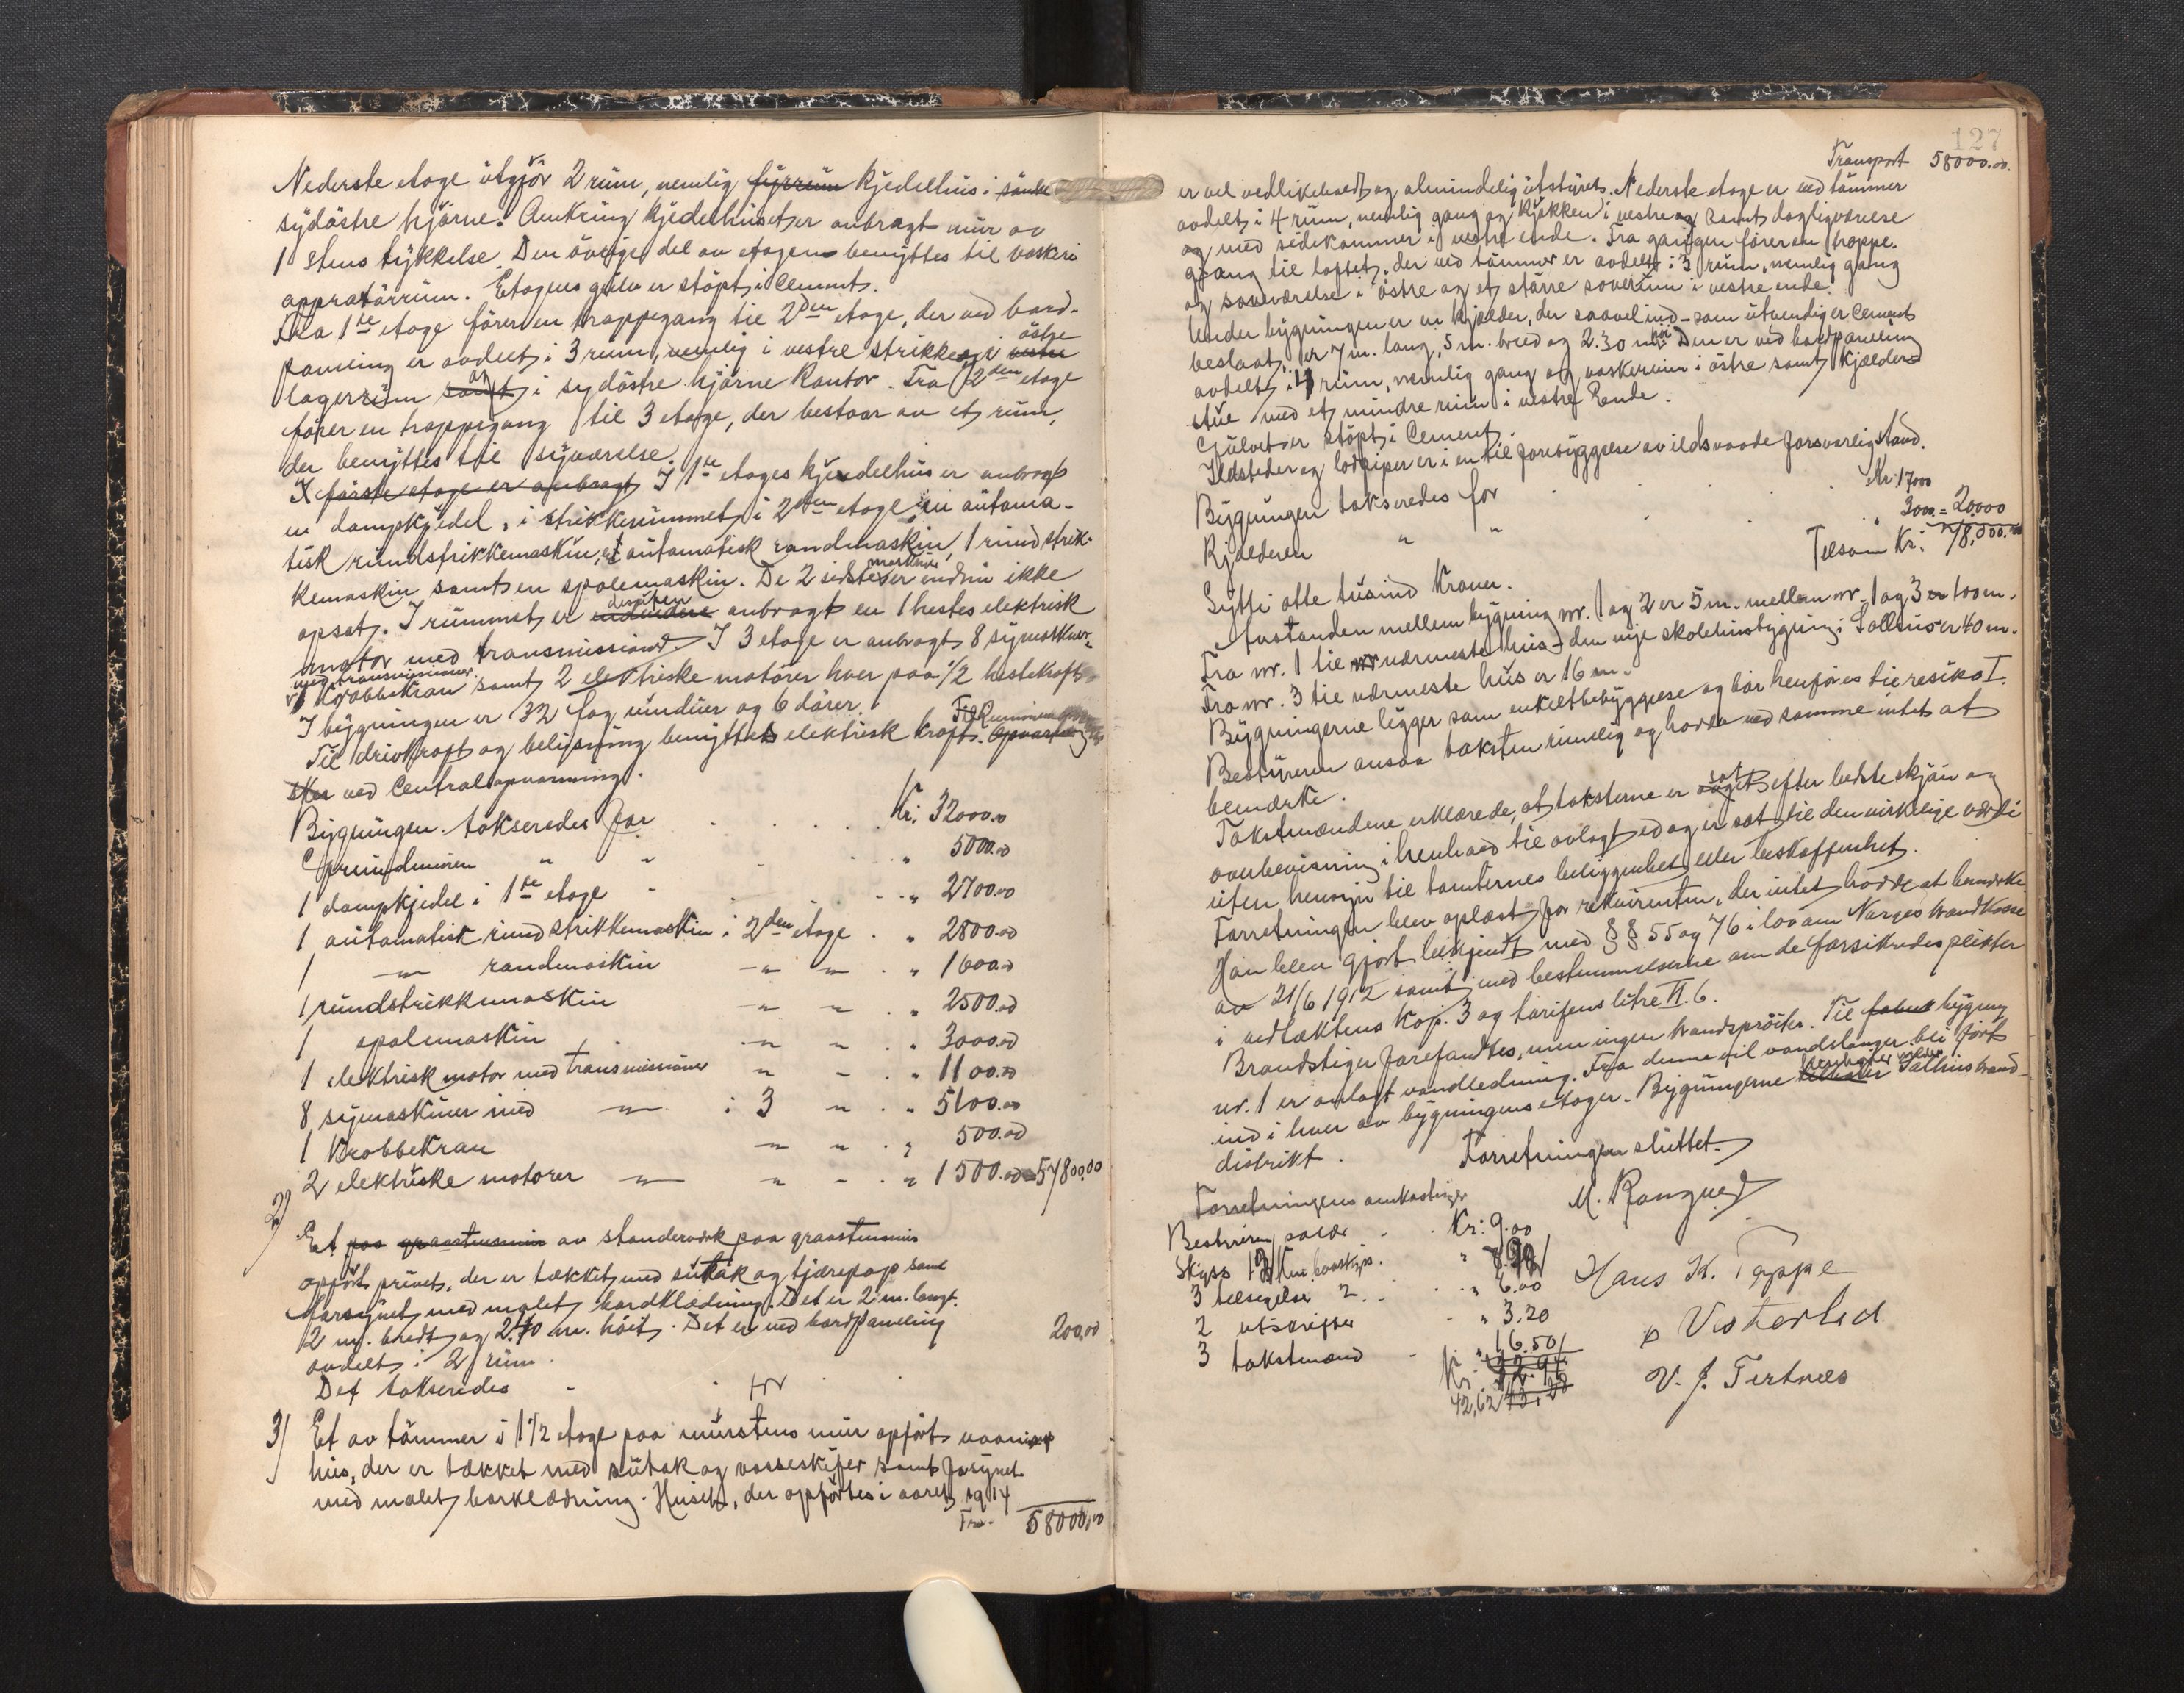 Nederste etage utgjör 2 rum, nemlig fyrrum kjedelhus i
sydöstre hjörne. Omkring kjedelhuset er anbragt mur av
1 stens tykkelse. Den övrige del av etagen benyttes til vaskeri
appratörrum. Etagens gulv er stöpt i cement.
Fra 1ste etage förer en trappegang til 2den etage, der ved bord-
paneling er avdelt i 3 rum, nemlig i vestre strikkeri, i vestre östre
lagerrum samt og i sydöstre hjörne kontor. Fra 2den etage
förer en trappegang til 3 etage, der bestaar av et rum,
der benyttes til syværelse.
I förste etage er anbragt I 1ste etages kjedelhus er anbragt
en dampkjedel, i strikkerummet i 2den etage en automa-
tisk rundstrikkemaskin, 1 automatisk randmaskin, 1 rundstrik-
kemaskin samt en spolemaskin. De 2 sidste maskiner er endnu ikke
opsat. I rummet er endvidere desuten anbragt en 1 hestes elektrisk
motor med transmissioner. I 3 etage er anbragt 8 symaskiner
med transmissioner
1 Krobbekran samt 2 elektriske motorer hver paa 1/2 hestekraft
I bygningen er 32 fag vinduer og 6 dörer.
Til drivkraft og belysning benyttes elektrisk kraft. Opvarming
sker ved Centralopvarming.
Bygningen takseredes for Kr. 32000.00
Grundmuren " " " 5000.00
1 dampkjedel i 1ste etage " 2700.00
1 automatisk rundstrikkemaskin i 2den etage " 2800.00
1 " randmaskin " " " 1600.00
1 rundstrikkemaskin " " " 2500.00
1 spolemaskin " " " 3000.00
1 elektrisk motor med transmissioner " " " 1100.00
8 symaskiner med " i 3 " " 5100.00
1 Krobbekran " " " 500.00
2 elektriske motorer " " " " 1500.00 = 57800.00
2)
Et paa graastensmur av standerverk paa graastensmur
opfört privet, der er tækket med sutak og tjærepap samt
forsynet med malet bordklædning. Det er 2 m. langt,
2 m. bredt og 2.40 m. höit. Det er ved bordpaneling
avdelt i 2 rum.
Det takseredes for 200,00
3) Et av tömmer i 1 1/2 etage paa murstens mur opfört vaanings
hus, der er tækket med sutak og vosseskifer samt forsynet
med malet borklædning. Huset, der opförtes i aaret 1914
Tr. 58000,00
127
Transport 58000.00
er vel vedlikeholdt og almindelig utstyret. Nederste etage er ved tömmer
avdelt i 4 rum, nemlig gang og kjökken i vestre og samt dagligværelse
og med sidekammer i vestre ende. Fra gangen förer en trappe-
gang til loftet, der ved tömmer er avdelt i 3 rum, nemlig gang
og soveværelse i östre og et större soverum i vestre ende.
Under bygningen er en kjælder, der saavel ind- som utvendig er cement
beslaat, er 7 m. lang, 5 m. bred og 2.30 m. höi. Den er ved bordpaneling
avdelt i 4 rum, nemlig gang og vaskerum i östre samt kjælder-
stue med et mindre rum i vestre Ende.
Gulvet er stöpt i Cement.
Ildsteder og lodpiper er i en til forebyggelse av ildsvaade forsvarlig stand.
Bygningen takseredes for Kr. 17000
Kjælderen " " " 3000 = 20000
Tilsam Kr: 78,000.00
Sytti otte tusind Kroner.
Avstanden mellem bygning nr. 1 og 2 er 5 m. mellem nr. 1 og 3 er 100 m.
Fra nr. 1 til nr nærmeste hus - den nye skolehusbygning i Salhus er 40 m.
Fra nr. 3 til nærmeste hus er 16 m.
Bygningerne ligger som enkeltbebyggelse og bör henföres til resiko I.
Bestyreren ansaa taksten rimelig og havde ved samme intet at
bemærke.
Takstmændene erklærede, at taksterne er avgit sat efter bedste skjön og
overbevisning i henhold til avlagt ed og er sat til den virkelige værdi
uten hensyn til tomternes beliggenhet eller beskaffenhet.
Forretningen blev oplæst for rekvirenten, der intet havde at bemærke.
Han blev gjort bekjendt med §§ 55 og 76 i lov om Norges brandkasse
av 21/6 1912 samt med bestemmelserne om de forsikredes plikter
i vedtækters Kap. 3 og tarifens litre VI. 6.
Brandstiger forefandtes, men ingen brandspröiter. Til bygning
nr. 1 er anlagt vandledning. Fra denne vil vandslanger bli fört
ind i hver av bygningens etager. Bygningerne tilhörer henhörer under Salhus brand-
distrikt.
Forretningen sluttet.
Forretningens omkostninger
Bestyrerens salær Kr: 9.00
Skyss
3 tilsigelse 2. " 6.00
2 utskrifter " 3.20
3 takstmænd " 16.50
Kr.
42,62
M. Rangved
Hans K. Toppe
Vesterlid
V. J. Tertnæs